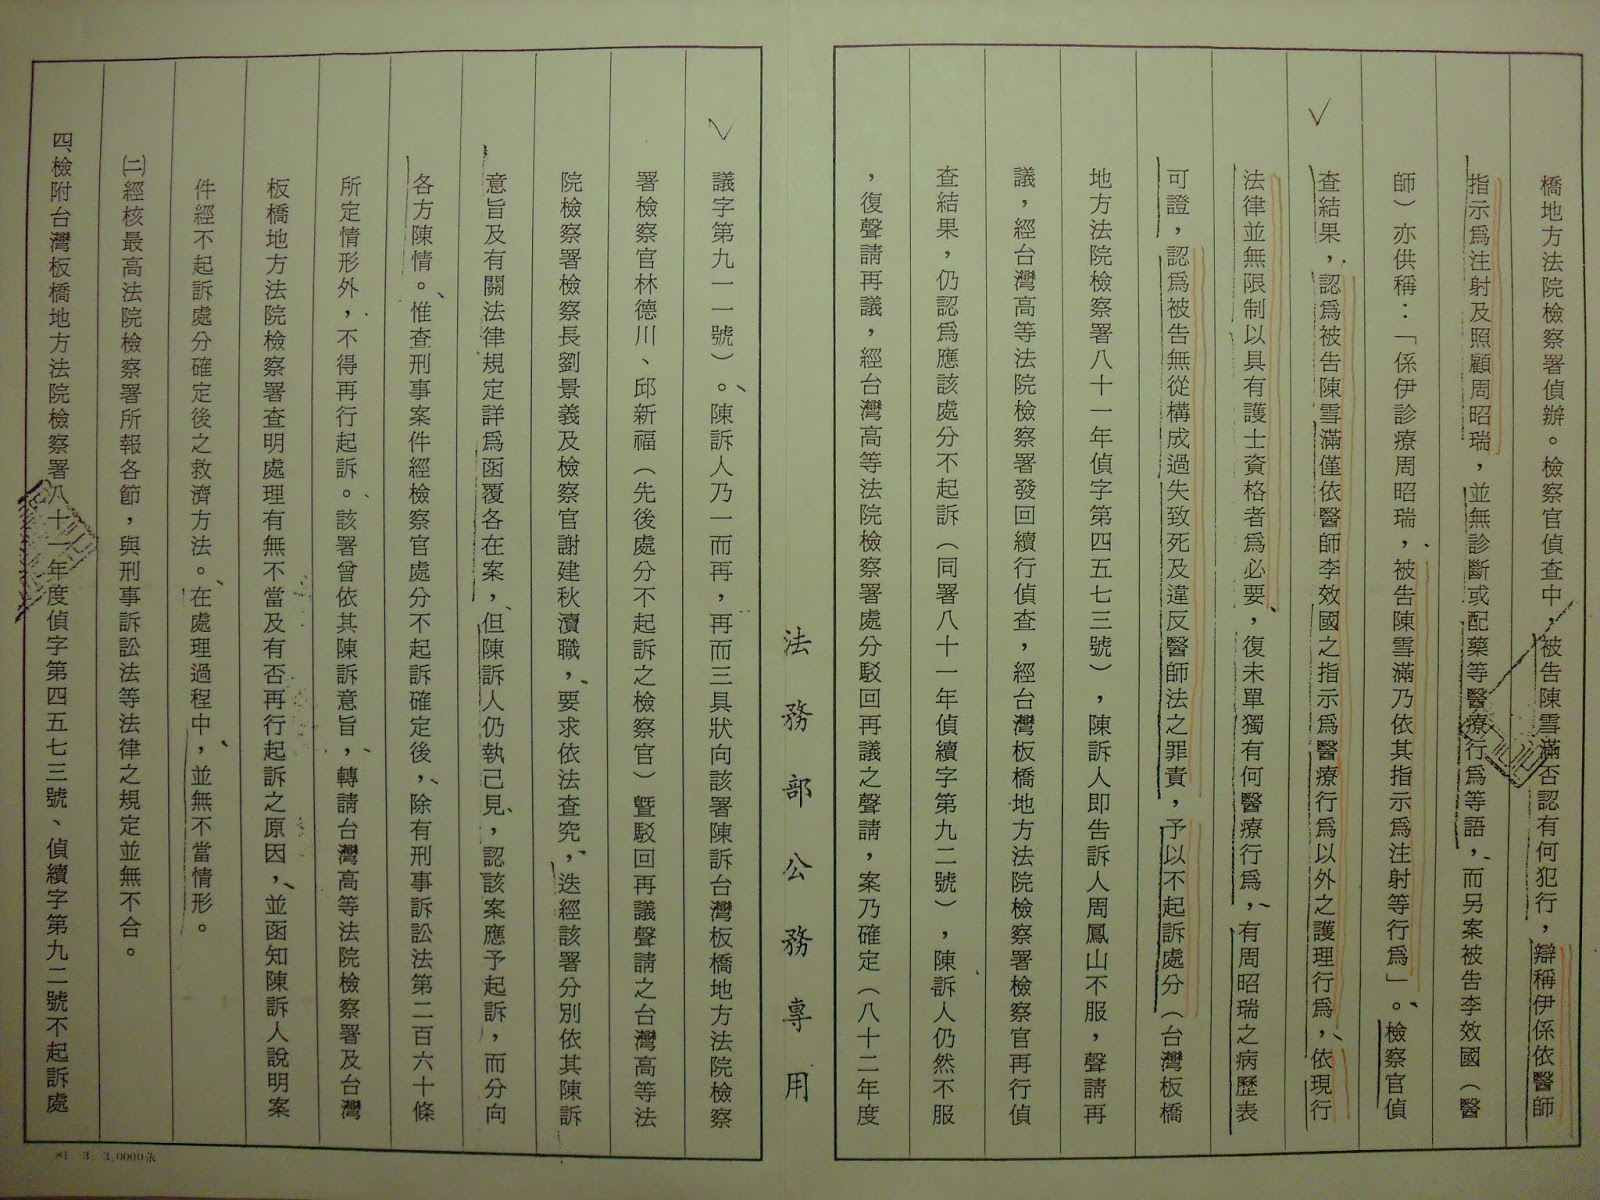 橋地方法院檢察署偵辦。檢察官偵查中，被告陳雪滿否認有何犯行，辯稱伊係依醫師
指示為注射及照顧周昭瑞，並無診斷或配藥等醫療行為等語，而另案被告李效國（醫
師）亦供稱：「係伊診療周昭瑞，被告陳雪滿乃依其指示為注射等行為」。檢察官偵
查結果，認為被告陳雪滿僅依醫師李效國之指示為醫療行為以外之護理行為，依現行
法律並無限制以具有護士資格者為必要，復未單獨有何醫療行為，有周昭瑞之病歷表
可證，認為被告無從構成過失致死及違反醫師法之罪責，予以不起訴處分（台灣板橋
地方法院檢察署八十一年偵字第四五七三號），陳訴人即告訴人周鳳山不服，聲請再
議，經台灣高等法院檢察署發回續行偵查，經台灣板橋地方法院檢察署檢察官再行偵
查結果，仍認為應該處分不起訴（同署八十一年偵續字第九二號），陳訴人仍然不服
，復聲請再議，經台灣高等法院檢察署處分駁回再議之聲請，案乃確定（八十二年度
法務部公務專用
議字第九一一號）。陳訴人乃一而再，再而三具狀向該署陳訴台灣板橋地方法院檢察
署檢察官林德川、邱新福（先後處分不起訴之檢察官）暨駁回再議聲請之台灣高等法
院檢察署檢察長劉景義及檢察官謝建秋瀆職，要求依法查究，迭經該署分別依其陳訴
意旨及有關法律規定詳為函覆各在案，但陳訴人仍執己見，認該案應予起訴，而分向
各方陳情。惟查刑事案件經檢察官處分不起訴確定後，除有刑事訴訟法第二百六十條
所定情形外，不得再行起訴。該署曾依其陳訴意旨，轉請台灣高等法院檢察署及台灣
板橋地方法院檢察署查明處理有無不當及有否再行起訴之原因，並函知陳訴人說明案
件經不起訴處分確定後之救濟方法。在處理過程中，並無不當情形。
㈡經核最高法院檢察署所報各節，與刑事訴訟法等法律之規定並無不合。
四、檢附台灣板橋地方法院檢察署八十一年度偵字第四五七三號、偵續字第九二號不起訴處
81. 3. 3,0000張